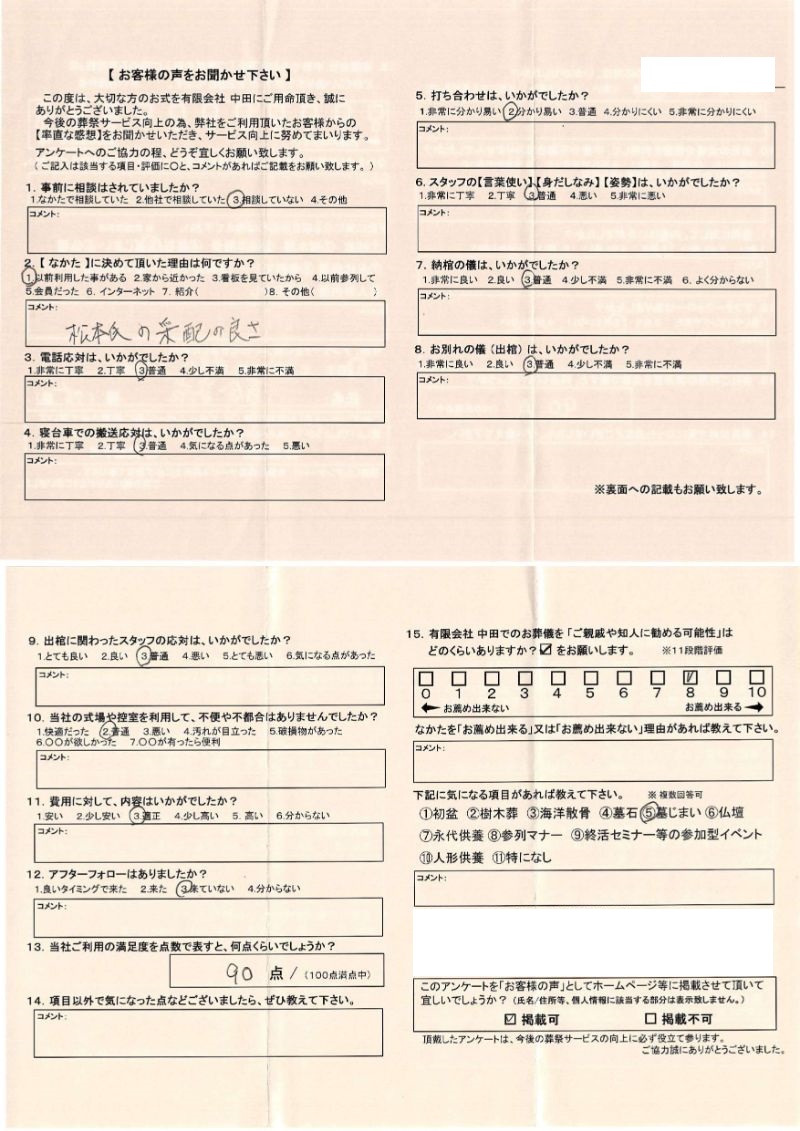 【 お客様の声をお聞かせ下さい 】
この度は、大切な方のお式を有限会社 中田にご用命頂き、誠に
ありがとうございました。
今後の葬祭サービス向上の為、弊社をご利用頂いたお客様からの
【率直な感想】をお聞かせいただき、サービス向上に努めてまいります。
アンケートへのご協力の程、どうぞ宜しくお願い致します。
(ご記入は該当する項目・評価に〇と、コメントがあればご記載をお願い致します。)
1. 事前に相談はされていましたか?
1.なかたで相談していた 2.他社で相談していた 3.相談していない 4.その他
コメント:
2. 【 なかた 】に決めて頂いた理由は何ですか?
1.以前利用した事がある 2.家から近かった 3.看板を見ていたから 4.以前参列して
5.会員だった 6. インターネット 7. 紹介( )8. その他( )
コメント:
松本氏の采配の良さ
3. 電話応対は、いかがでしたか?
1.非常に丁寧 2.丁寧 3.普通 4.少し不満 5.非常に不満
コメント:
4. 寝台車での搬送応対は、いかがでしたか?
1.非常に丁寧 2.丁寧 3.普通 4.気になる点があった 5.悪い
コメント:
5. 打ち合わせは、いかがでしたか?
1.非常に分かり易い 2.分かり易い 3.普通 4.分かりにくい 5.非常に分かりにくい
コメント:
6. スタッフの【言葉使い】【身だしなみ】【姿勢】は、いかがでしたか?
1.非常に丁寧 2.丁寧 3.普通 4.悪い 5.非常に悪い
コメント:
7. 納棺の儀は、いかがでしたか?
1.非常に良い 2.良い 3.普通 4.少し不満 5.非常に不満 6. よく分からない
コメント:
8. お別れの儀(出棺)は、いかがでしたか?
1.非常に良い 2.良い 3.普通 4.少し不満 5.非常に不満
コメント:
※裏面への記載もお願い致します。
9. 出棺に関わったスタッフの応対は、いかがでしたか?
1.とても良い 2.良い 3.普通 4.悪い 5.とても悪い 6.気になる点があった
コメント:
10. 当社の式場や控室を利用して、不便や不都合はありませんでしたか?
1.快適だった 2.普通 3.悪い 4.汚れが目立った 5.破損物があった
6.〇〇が欲しかった 7.〇〇が有ったら便利
コメント:
11. 費用に対して、内容はいかがでしたか?
1.安い 2.少し安い 3.適正 4.少し高い 5. 高い 6.分からない
コメント:
12. アフターフォローはありましたか?
1.良いタイミングで来た 2.来た 3.来ていない 4.分からない
コメント:
13. 当社ご利用の満足度を点数で表すと、何点くらいでしょうか?
90 点 / (100点満点中)
14. 項目以外で気になった点などございましたら、ぜひ教えて下さい。
コメント:
15. 有限会社 中田でのお葬儀を「ご親戚や知人に勧める可能性」は
どのくらいありますか?☑をお願いします。 ※11段階評価
0 1 2 3 4 5 6 7 8 9 10
お薦め出来ない お薦め出来る
なかたを「お薦め出来る」又は「お薦め出来ない」理由があれば教えて下さい。
コメント:
下記に気になる項目があれば教えて下さい。 ※ 複数回答可
①初盆 ②樹木葬 ③海洋散骨 ④墓石 ⑤墓じまい ⑥仏壇
⑦永代供養 ⑧参列マナー ⑨終活セミナー等の参加型イベント
⑩人形供養 ⑪特になし
コメント:
このアンケートを「お客様の声」としてホームページ等に掲載させて頂いて
宜しいでしょうか?(氏名/住所等、個人情報に該当する部分は表示致しません。)
☑ 掲載可 □ 掲載不可
頂戴したアンケートは、今後の葬祭サービスの向上に必ず役立て参ります。
ご協力誠にありがとうございました。